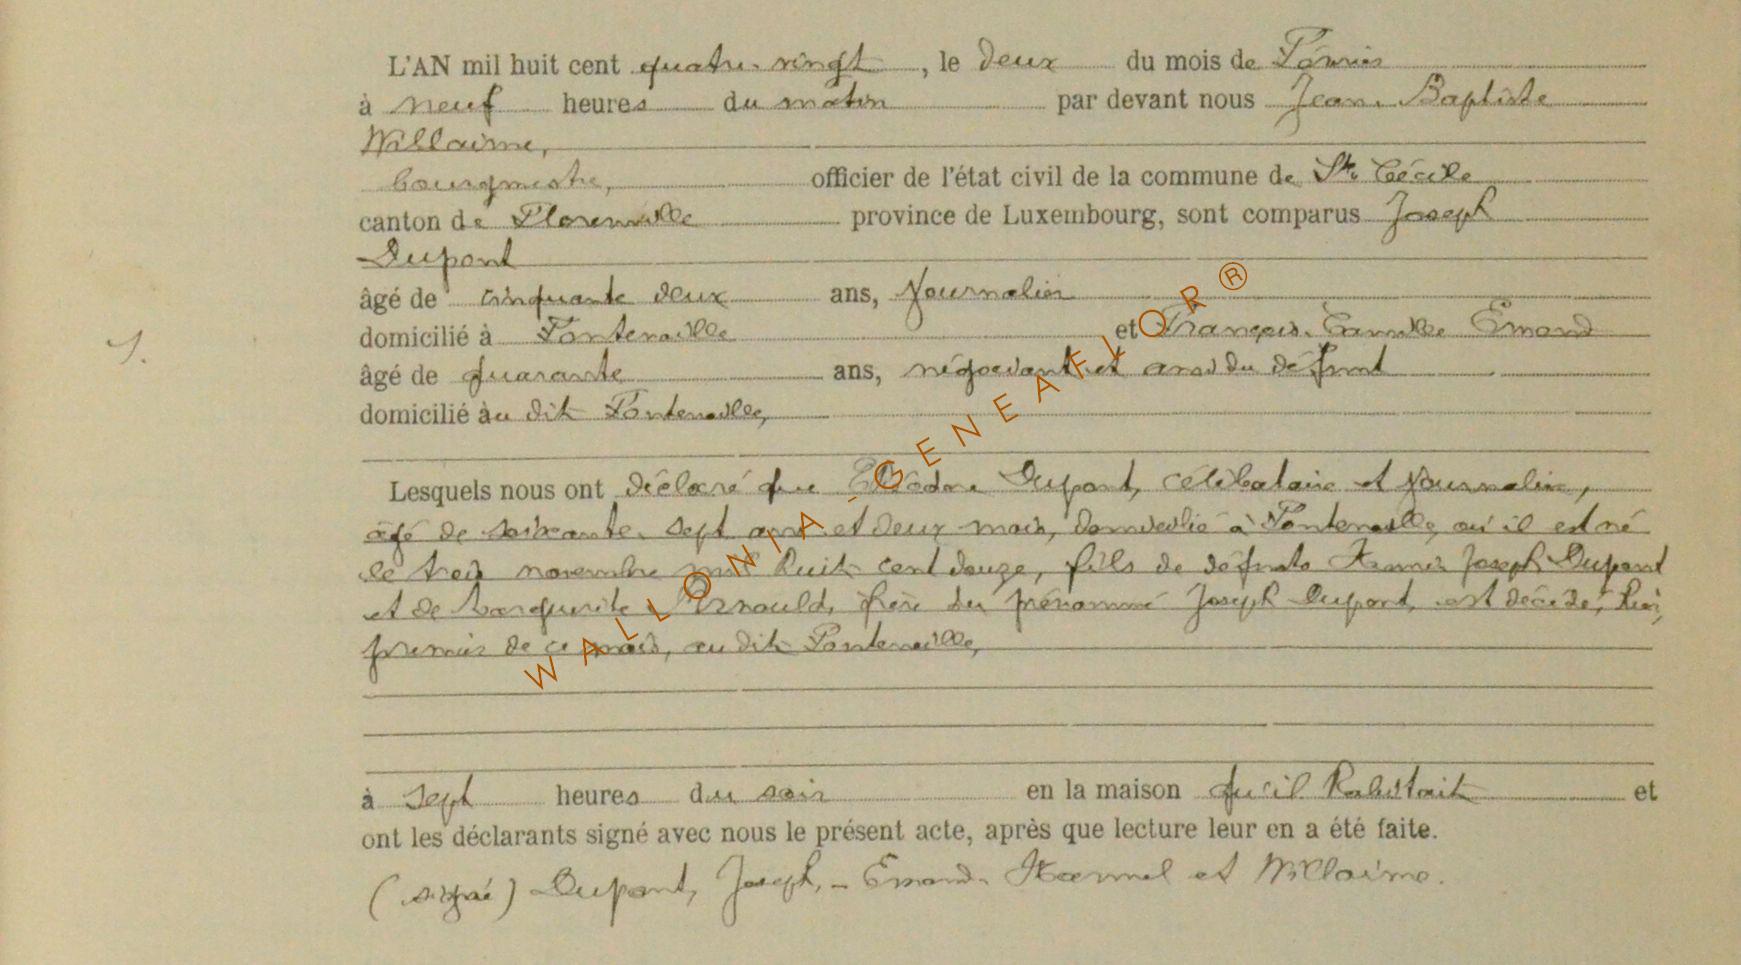 L'AN mil huit cent quatre-vingt, le deux du mois de
à neuf heures du matin par devant nous Jean-Baptiste
Willaime,
bourgmestre, officier de l'état civil de la commune de Ste Cécile
canton de Florenville province de Luxembourg, sont comparus Joseph
Dupont
âgé de cinquante deux ans, journalier
domicilié à Fontenoille et François Camille Emond
1.
âgé de quarante ans, négociant et ami du défunt
domicilié au dit Fontenoille,
Lesquels nous ont déclaré que Dupont, célibataire et journalier,
âgé de soixante-sept ans et deux mois, domicilié à Fontenoille, où il est né
le trois novembre mil huit cent douze, fils de défunts Joseph Dupont
et de Marguerite Arnould, frère du prénommé Joseph Dupont, est décédé, hier,
premier de ce mois, au dit Fontenoille,
à sept heures du soir en la maison qu'il habitait et
ont les déclarants signé avec nous le présent acte, après que lecture leur en a été faite.
(signé) Dupont, Joseph, - Emond- et Willaime.
WALLONIA-GENEAFLOR®